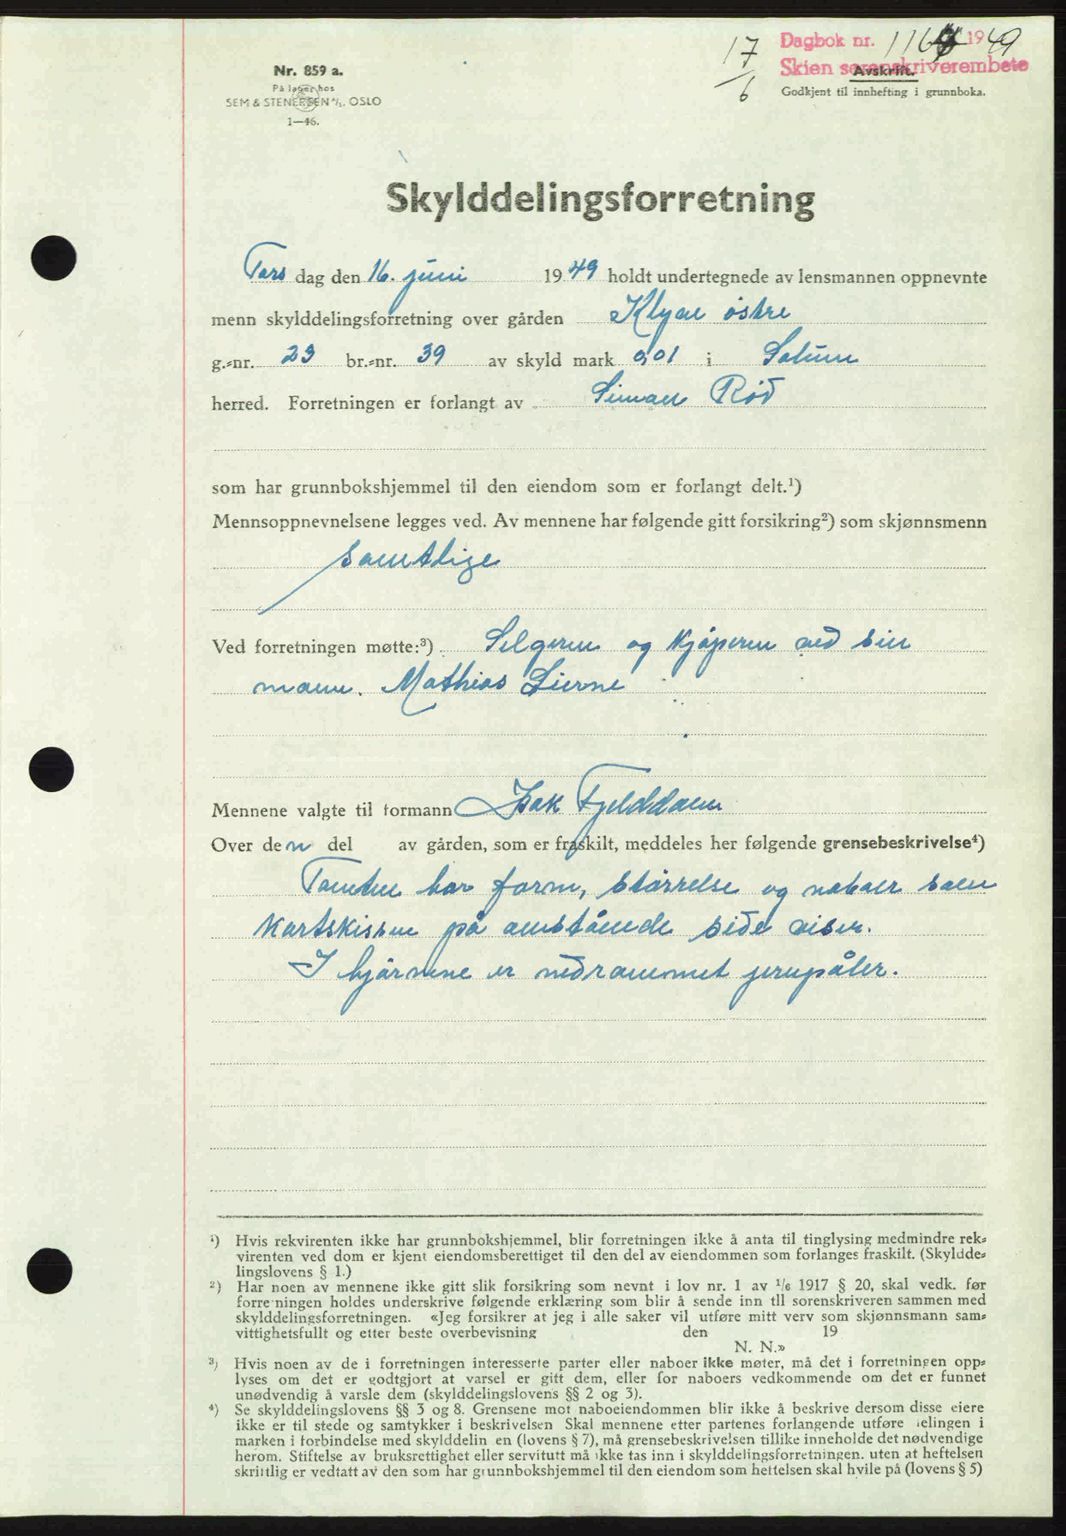 17/6
Dagbok nr. 1164 1949
Skien sorenskriverembete
Avskrift.
Godkjent til innhefting i grunnboka.
Nr. 859 a.
På lager hos
SEM & STENERSEN A/S. OSLO
1—46.
Skylddelingsforretning
Torsdag den 16. juni 1949 holdt undertegnede av lensmannen oppnevnte
menn skylddelingsforretning over gården Klyve østre
g.-nr. 23 br.-nr. 39 av skyld mark 0,01 i Solum
herred. Forretningen er forlangt av Simon Röd
som har grunnbokshjemmel til den eiendom som er forlangt delt.¹)
Mennsoppnevnelsene legges ved. Av mennene har følgende gitt forsikring²) som skjønnsmenn
samtlige
Ved forretningen møtte:³) Selgeren og kjøperen ved sin
mann. Mathias Lierne
Mennene valgte til formann Isak Fjelddalen
Over den del av gården, som er fraskilt, meddeles her følgende grensebeskrivelse⁴)
Tomten har form, størrelse og naboer som
kartskissen på omstående side viser.
I hjørnene er nedrammet jernpåler.
¹) Hvis rekvirenten ikke har grunnbokshjemmel, blir forretningen ikke å anta til tinglysing medmindre rek-
virenten ved dom er kjent eiendomsberettiget til den del av eiendommen som forlanges fraskilt. (Skyldde-
lingslovens § 1.)
²) Har noen av mennene ikke gitt slik forsikring som nevnt i lov nr. 1 av 1/6 1917 § 20, skal vedk. før
forretningen holdes underskrive følgende erklæring som blir å sende inn til sorenskriveren sammen med
skylddelingsforretningen. «Jeg forsikrer at jeg i alle saker vil utføre mitt verv som skjønnsmann sam-
vittighetsfullt og etter beste overbevisning den 19
N. N.»
³) Hvis noen av de i forretningen interesserte parter eller naboer ikke møter, må det i forretningen opp-
lyses om det er godtgjort at varsel er gitt dem, eller for naboers vedkommende om det er funnet
unødvendig å varsle dem (skylddelingslovens §§ 2 og 3).
⁴) Se skylddelingslovens §§ 3 og 8. Grensene mot naboeiendommen blir ikke å beskrive dersom disse eiere
ikke er til stede og samtykker i beskrivelsen Skal mennene etter partenes forlangende utføre delingen i
marken i forbindelse med skylddelingen (lovens § 7), må grensebeskrivelsen tillike inneholde det nødvendige
herom. Stiftelse av bruksrettighet eller servitutt må ikke tas inn i skylddelingsforretningen. uten at heftelsen
skriftlig er vedtatt av den som har grunnbokshjemmel til den eiendom som heftelsen skal hvile på (lovens § 5)